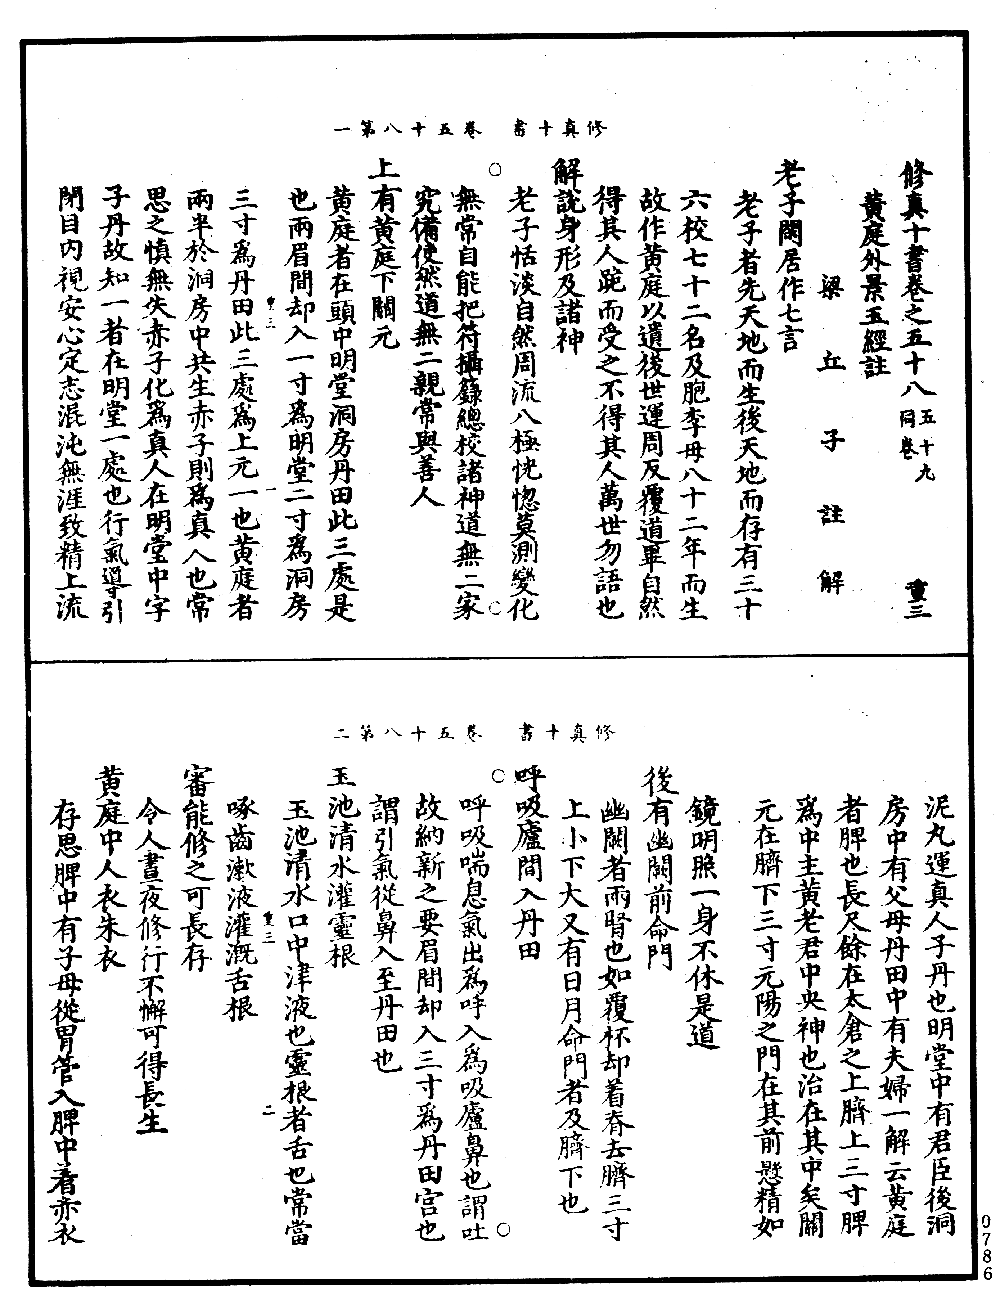 修真十書　卷五十八第一
修真十書卷之五十八　五十九同卷　重三
黃庭外景玉經註
梁丘子註解
老子閑居作七言
老子者先天地而生後天地而存有三十
六校七十二名及胞李母八十二年而生
故作黃庭以遺後世運周反覆道畢自然
得其人䟽而受之不得其人萬世勿語也
解説身形及諸神
老子恬淡自然周流八極恍惚莫測變化
無常自能把符攝籙總校諸神道無二家
究備使然道無二親常與善人
上有黃庭下關元
黃庭者在頭中明堂洞房丹田此三處是
也兩眉間却入一寸爲明堂二寸爲洞房
重三　一
三寸爲丹田此三處爲上元一也黃庭者
兩半於洞房中共生赤子則爲真人也常
思之慎無失赤子化爲真人在明堂中字
子丹故知一者在明堂一處也行氣導引
閉目内視安心定志混沌無涯致精上流
修真十書　卷五十八第二
泥丸運真人子丹也明堂中有君臣後洞
房中有父母丹田中有夫婦一解云黃庭
者脾也長尺餘在太倉之上臍上三寸脾
爲中主黃老君中央神也治在其中矣關
元在臍下三寸元陽之門在其前懸精如
鏡明照一身不休是道
後有幽闕前命門
幽闕者兩腎也如覆杯却着脊去臍三寸
上小下大又有日月命門者及臍下也
呼吸廬間入丹田
呼吸喘息氣出爲呼入爲吸廬鼻也謂吐
故納新之要眉間却入三寸爲丹田宮也
謂引氣從鼻入至丹田也
玉池清水灌靈根
玉池清水口中津液也靈根者舌也常當
重三　二
啄齒漱液灌溉舌根
審能修之可長存
令人晝夜修行不懈可得長生
黃庭中人衣朱衣
存思脾中有子母從胃管入脾中着赤衣
0786